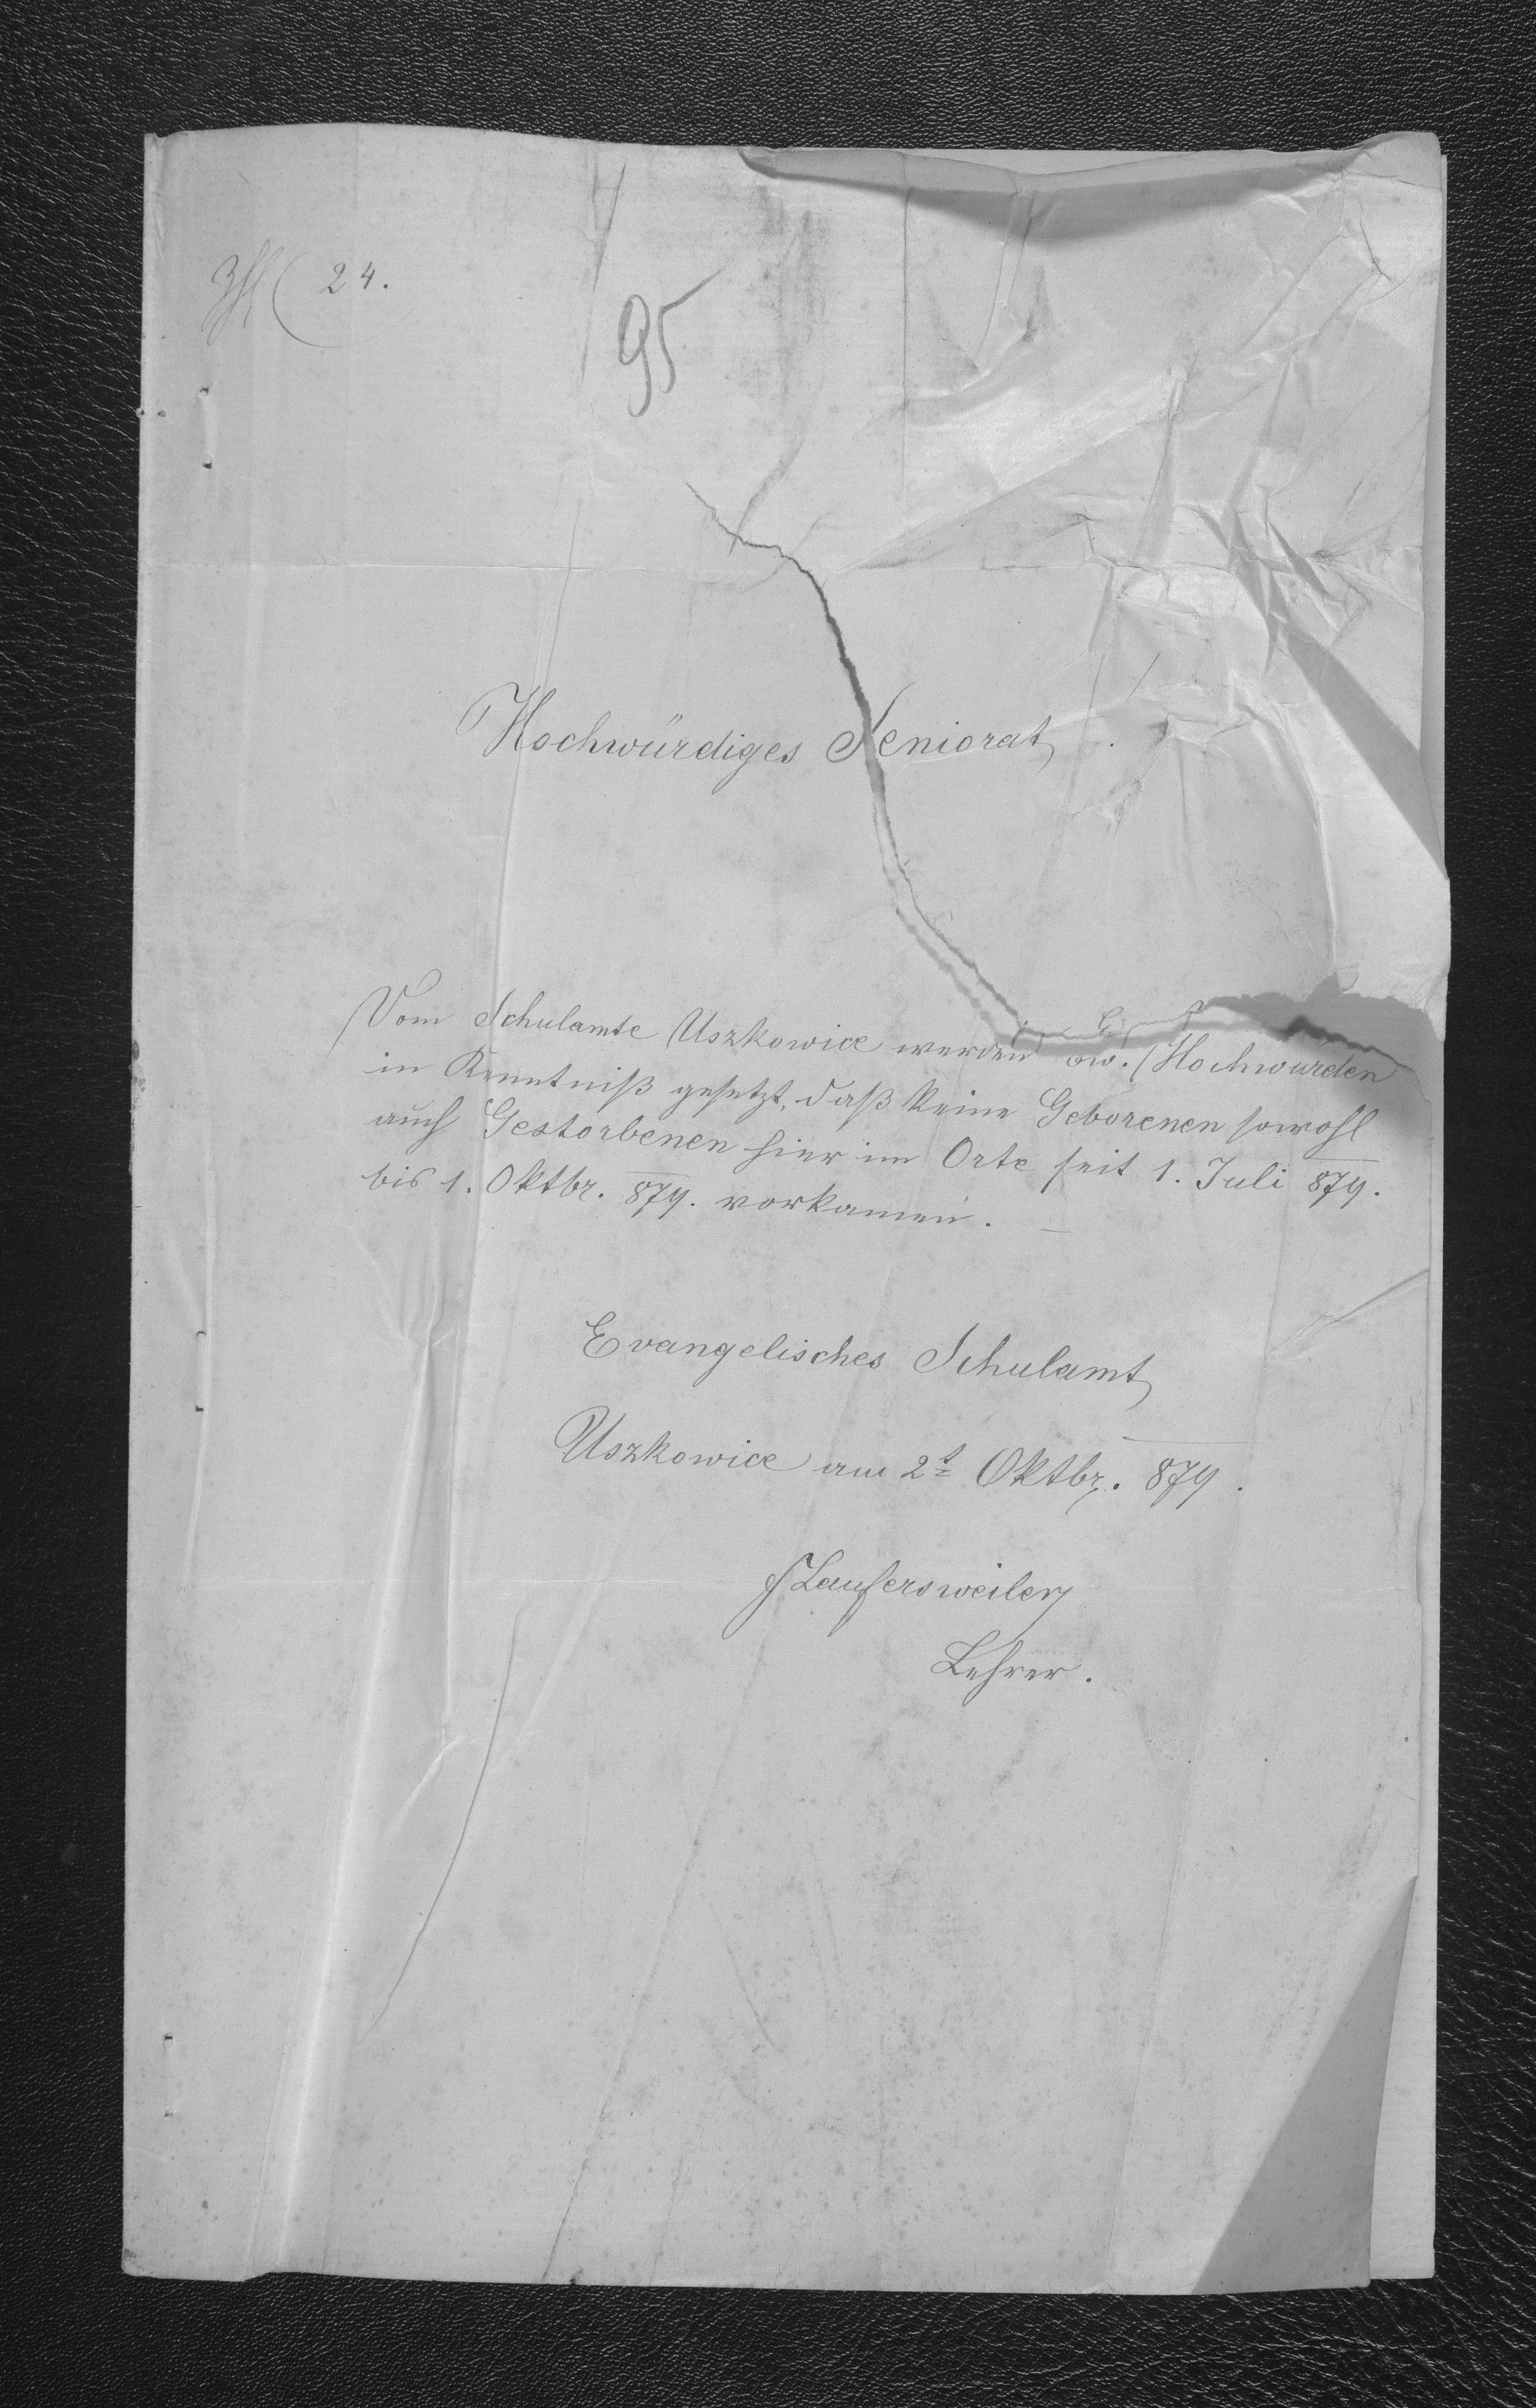 24.
95
Hochwürdiges Seniorat
Vom Schulamte Uszkowice werden Ew. Hochwürden
in Kenntniß gesetzt, daß keine Geborenen sowohl
auch Gestorbenen hier im Orte seit 1. Juli 879.
bis 1. Oktbr. 879. vorkamen.
Evangelisches Schulamt
Uszkowice am 2t Oktbr. 879.
Laufersweiler
Lehrer.